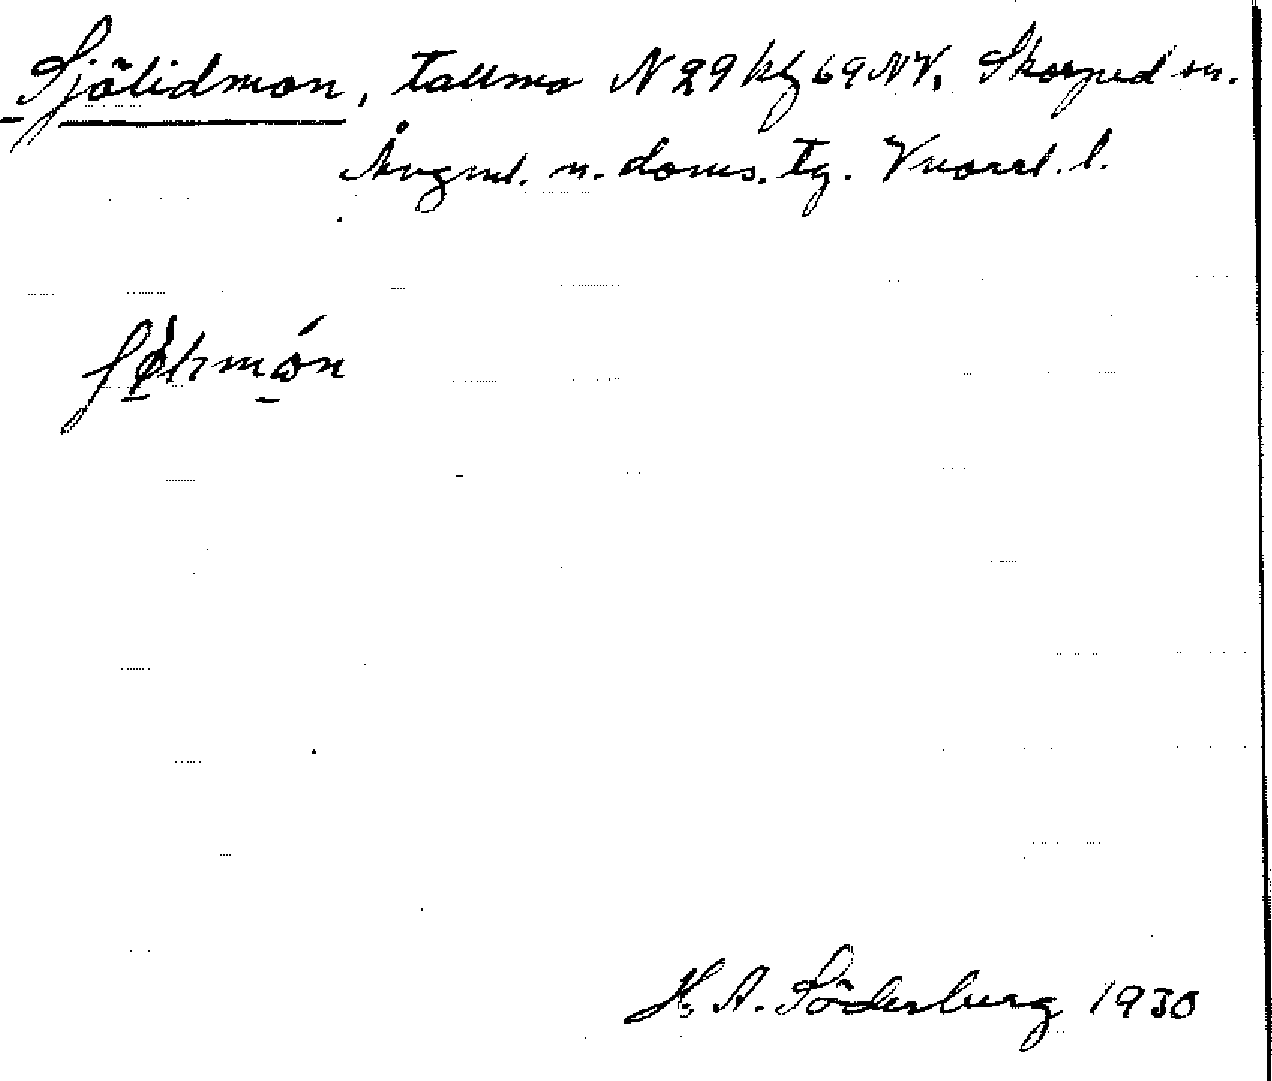 Sjölidmon, tallmo N 29 kf 69 NV, Skorped sn.
Ångml. n. doms. tg. Vnorrl. l.
H. A. Söderberg 1930